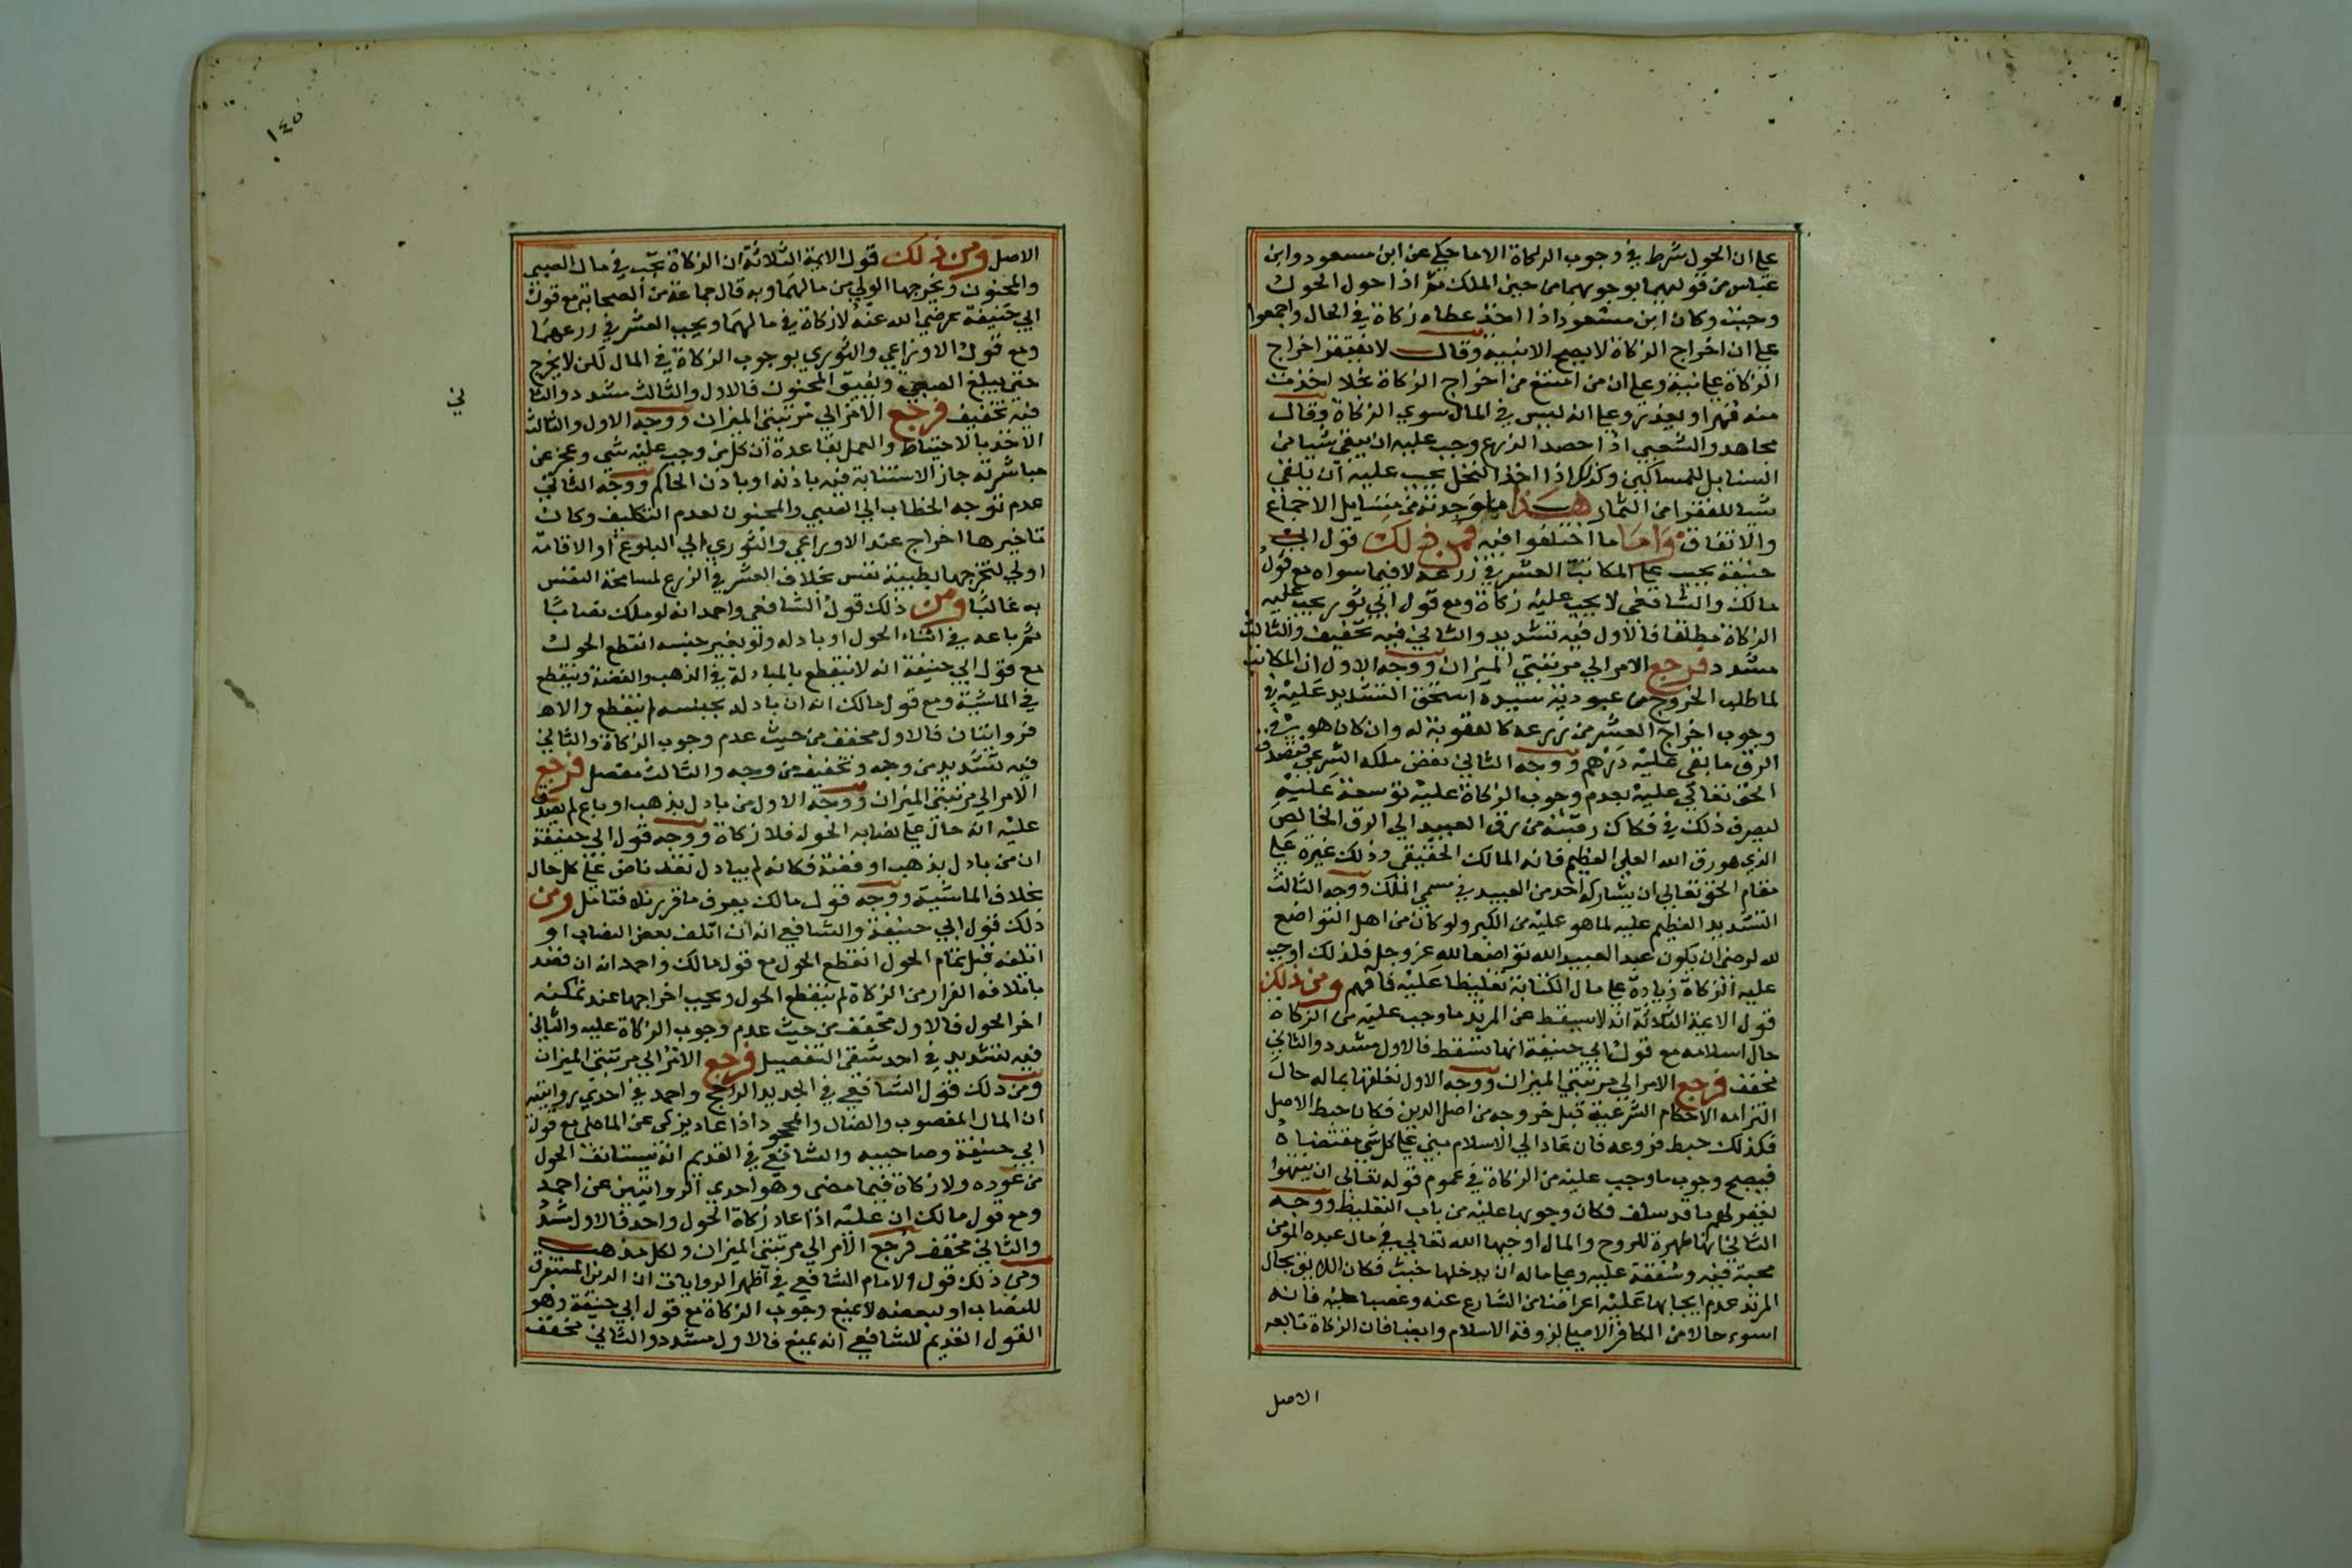 علي ان الحول شرط في وجوب الزكاة الا ما حكي عن ابن مسعود وابن
عباس من قولهما بوجوبهما من حين الملك ثم اذا حول الحول
وجبت وكان ابن مسعود اذا اخذ عطاه زكاة في الحال واجمعوا
علي ان اخراج الزكاة لا يصح الا بنية وقال لا يفتقر اخراج
الزكاة علي نية وعلي ان من امتنع من اخراج الزكاة بخلا اخذت
منه قهرا ويعذر وعلي انه ليس في المال سوي الزكاة وقال
مجاهد والشعبي اذا حصد الزرع وجب عليه ان يلقي شيا من
السنابل للمساكين وكذلك اذا اخذ النخل يجب عليه ان يلقي
شيا للفقرا من الثمار هذا ما وجدته من مسايل الاجماع
والاتفاق واما ما اختلفوا فيه فمن ذلك قول ابي
حنيفة يجب علي المكاتب العشر في زرعه لا فيما سواه مع قول
مالك والشافعي لا يجب عليه زكاة ومع قول ابي ثور يجب عليه
الزكاة مطلقا فالاول فيه تشديد والثاني فيه تخفيف والثالث
مشدد فرجع الامر الي مرتبتي الميزان ووجه الاول ان المكاتب
لما طلب الخروج من عبودية سيده استحق التشديد عليه في
وجوب اخراج العشر من زرعه كالعقوبة له وان كان هو في
الرق ما بقي عليه درهم ووجه الثاني نقض ملكه الشرعي فتصدق
الحق تعالي عليه بعدم وجوب الزكاة عليه توسعة عليه
ليصرف ذلك في فكاك رقبته من رق العبيد الي الرق الخالص
الذي هو رق الله العلي العظيم فانه المالك الحقيقي وذلك غيرة علي
مقام الحق تعالي ان يشاركه احد من العبيد في مسمي الملك ووجه الثالث
التشديد العظيم عليه لما هو عليه من الكبر ولو كان من اهل التواضع
لله لرضي ان يكون عبد العبيد الله تواضعا لله عز وجل فلذلك اوجب
عليه الزكاة زيادة علي مال الكتابة تغليظا عليه فافهم ومن ذلك
قول الايمة الثلاثة انه لا يسقط عن المرتد ما وجب عليه من الزكاة
حال اسلامه مع قول ابي حنيفة انها تسقط فالاول مشدد والثاني
مخفف فرجع الامر الي مرتبتي الميزان ووجه الاول تعلقها بماله حال
التزامه الاحكام الشرعية قبل خروجه من اصل الدين فكان حبط الاصل
فكذلك حبط فروعه فان عاد الي الاسلام بني علي كل شي مقتضاه
فيصح وجوب ما وجب عليه من الزكاة في عموم قوله تعالي ان ينتهوا
يغفر لهم ما قد سلف فكان وجوبها عليه من باب التغليظ ووجه
الثاني انها طهرة للروح والمال اوجبها الله تعالي في مال عبده المومن
محبة فيه وشفقة عليه وعلي ماله ان يدخلها خبث فكان اللايق بحال
المرتد عدم ايجابها عليه اعراضا من الشارع عنه وغضبا عليه فانه
اسوء حالا من الكافر الاصلي لزوقه الاسلام وايضا فان الزكاة تابعه
الاصل
١٤٥
الاصل ومن ذلك قول الايمة الثلاثة ان الزكاة تجب في مال الصبي
والمجنون ويخرجها الولي من مالهما وبه قال جماعة من الصحابة مع قول
ابي حنيفة رضي الله عنه لا زكاة في مالهما ويجب العشر في زرعهما
ومع قول الاوزاعي والثوري بوجوب الزكاة في المال لكن لا يخرج
حتي يبلغ الصبي ويفيق المجنون فالاول والثالث مشدد والثا
ني
فيه تخفيف فرجع الامر الي مرتبتي الميزان ووجه الاول والثالث
الاخذ بالاحتياط والعمل بقاعدة ان كل من وجب عليه شي وعجز عن
مباشرته جاز الاستنابة فيه باذنه او باذن الحاكم ووجه الثاني
عدم توجه الخطاب الي الصبي والمجنون لعدم التكليف وكان
تاخيرها اخراج عند الاوزاعي والثوري الي البلوغ او الافاقة
اولي لتخرجها بطيبة نفس بخلاف العشر في الزرع لمسامحة النفس
به غالبا ومن ذلك قول الشافعي واحمد انه لو ملك نصابا
ثم باعه في اثناء الحول او بادله ولو بغير جنسه انقطع الحول
مع قول ابي حنيفة انه لا ينقطع بالمبادلة في الذهب والفضة وينقطع
في الماشية ومع قول مالك انه ان بادله بجنسه لم ينقطع والاهـ
فروايتان فالاول مخفف من حيث عدم وجوب الزكاة والثاني
فيه تشديد من وجه وتخفيف من وجه والثالث مفصل فرجع
الامر الي مرتبتي الميزان ووجه الاول من بادل بذهب او باع لم يصدق
عليه انه حال علي نصابه الحول فلا زكاة ووجه قول ابي حنيفة
ان من بادل بذهب او فضة فكانه لم يبادل نقد ناض علي كل حال
بخلاف الماشية ووجه قول مالك يعرف ما قررناه فتامل ومن
ذلك قول ابي حنيفة والشافعي انه ان اتلف بعض النصاب او
اتلفه قبل تمام الحول انقطع الحول مع قول مالك واحمد انه ان قصد
باتلافه الفرار من الزكاة لم ينقطع الحول ويجب اخراجها عند تمكنه
اخر الحول فالاول مخفف من حيث عدم وجوب الزكاة عليه والثاني
فيه تشديد في احد شقي التفصيل فرجع الامر الي مرتبتي الميزان
ومن ذلك قول الشافعي في الجديد الراجح واحمد في احدي روايتيه
ان المال المغصوب والضال والمجحود اذا عاد يزكي عن الماضي مع قول
ابي حنيفة وصاحبيه والشافعي في القديم انه يستانف الحول
من عوده ولا زكاة فيما مضي وهو احدي الروايتين عن احمد
ومع قول مالك ان عليه اذا عاد زكاة الحول واحد فالاول مشدد
والثاني مخفف فرجع الامر الي مرتبتي الميزان ولكل مذهب
ومن ذلك قول الامام الشافعي في اظهر الروايات ان الدين المستغرق
للنصاب او لبعضه لا يمنع وجوب الزكاة مع قول ابي حنيفة وهو
القول القديم للشافعي انه يمنع فالاول مشدد والثاني مخفف